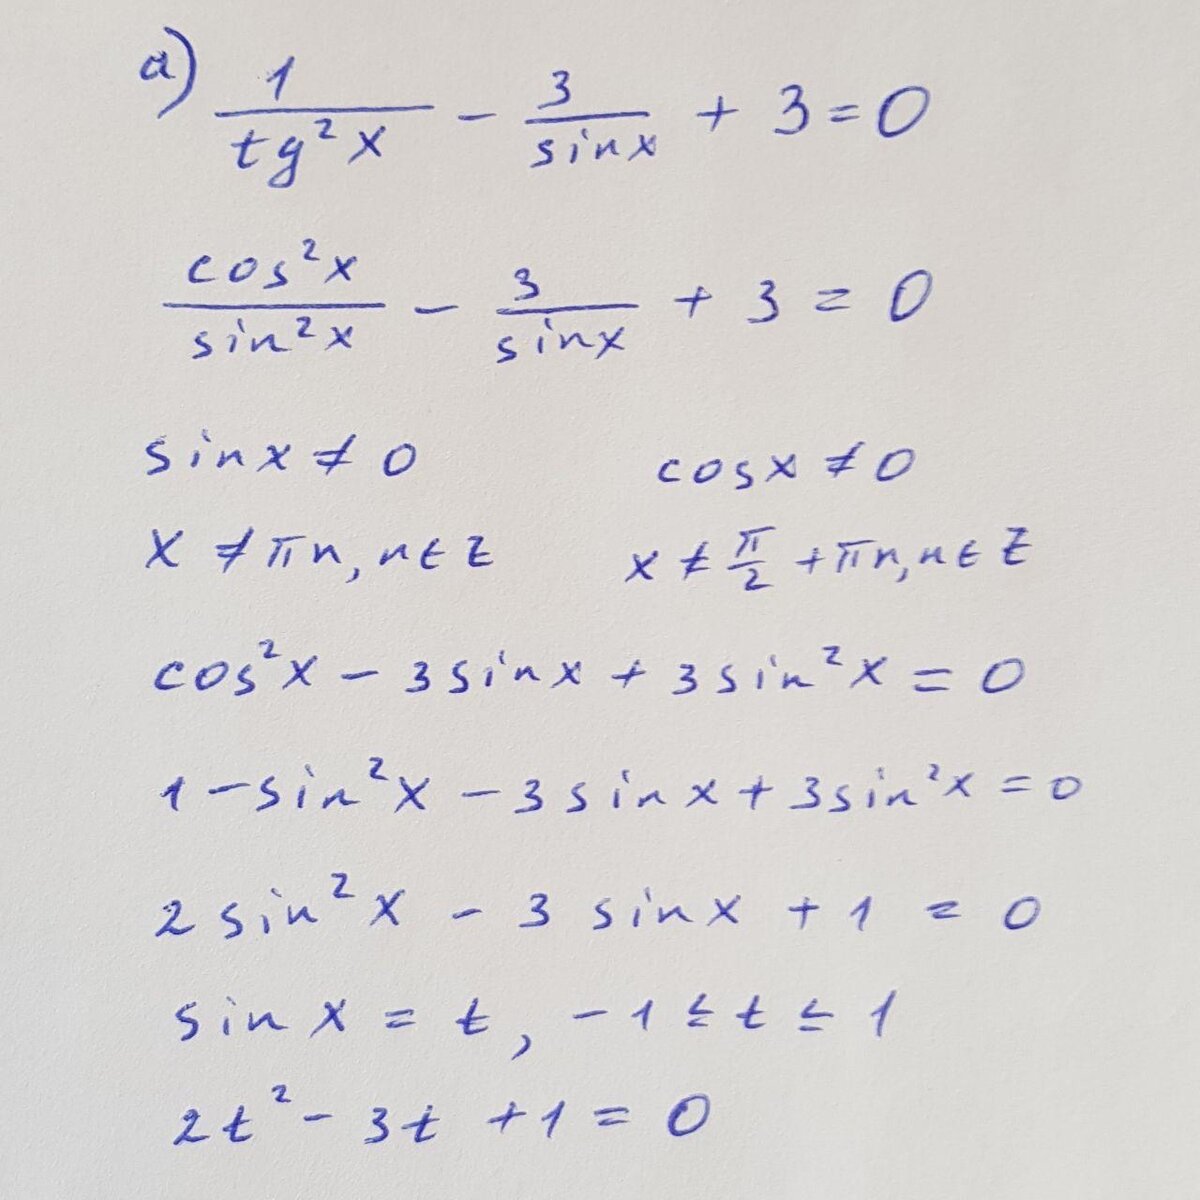 а) 1/tg²x - 3/sinx + 3 = 0
cos²x/sin²x - 3/sinx + 3 = 0
sinx ≠ 0 cosx ≠ 0
x ≠ πn, n∈Z x ≠ π/2 + πn, n∈Z
cos²x - 3sinx + 3sin²x = 0
1 - sin²x - 3sinx + 3sin²x = 0
2sin²x - 3sinx + 1 = 0
sinx = t, -1 ≤ t ≤ 1
2t² - 3t + 1 = 0